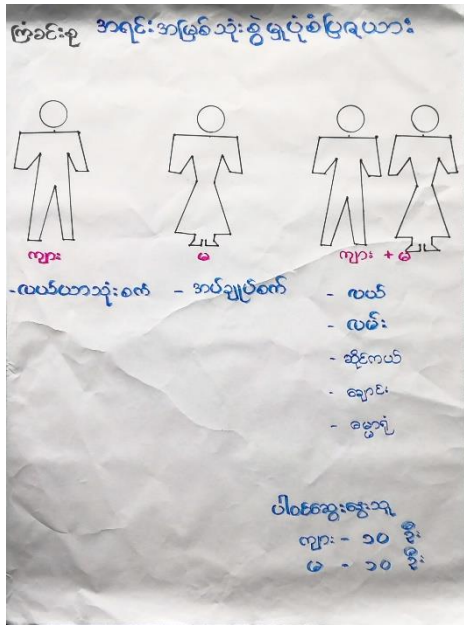 ကြံခင်းစု အရင်းအမြစ်သုံးစွဲမှုပုံစံပြဇယား
ကျား
မ
ကျား + မ
-လယ်ယာသုံးစက်
- အပ်ချုပ်စက်
- လယ်
- လမ်း
- ဆိုင်ကယ်
- ချောင်း
- ဓမ္မာရုံ
ပါဝင်ဆွေးနွေးသူ
ကျား - ၁၀ ဦး
မ - ၁၀ ဦး